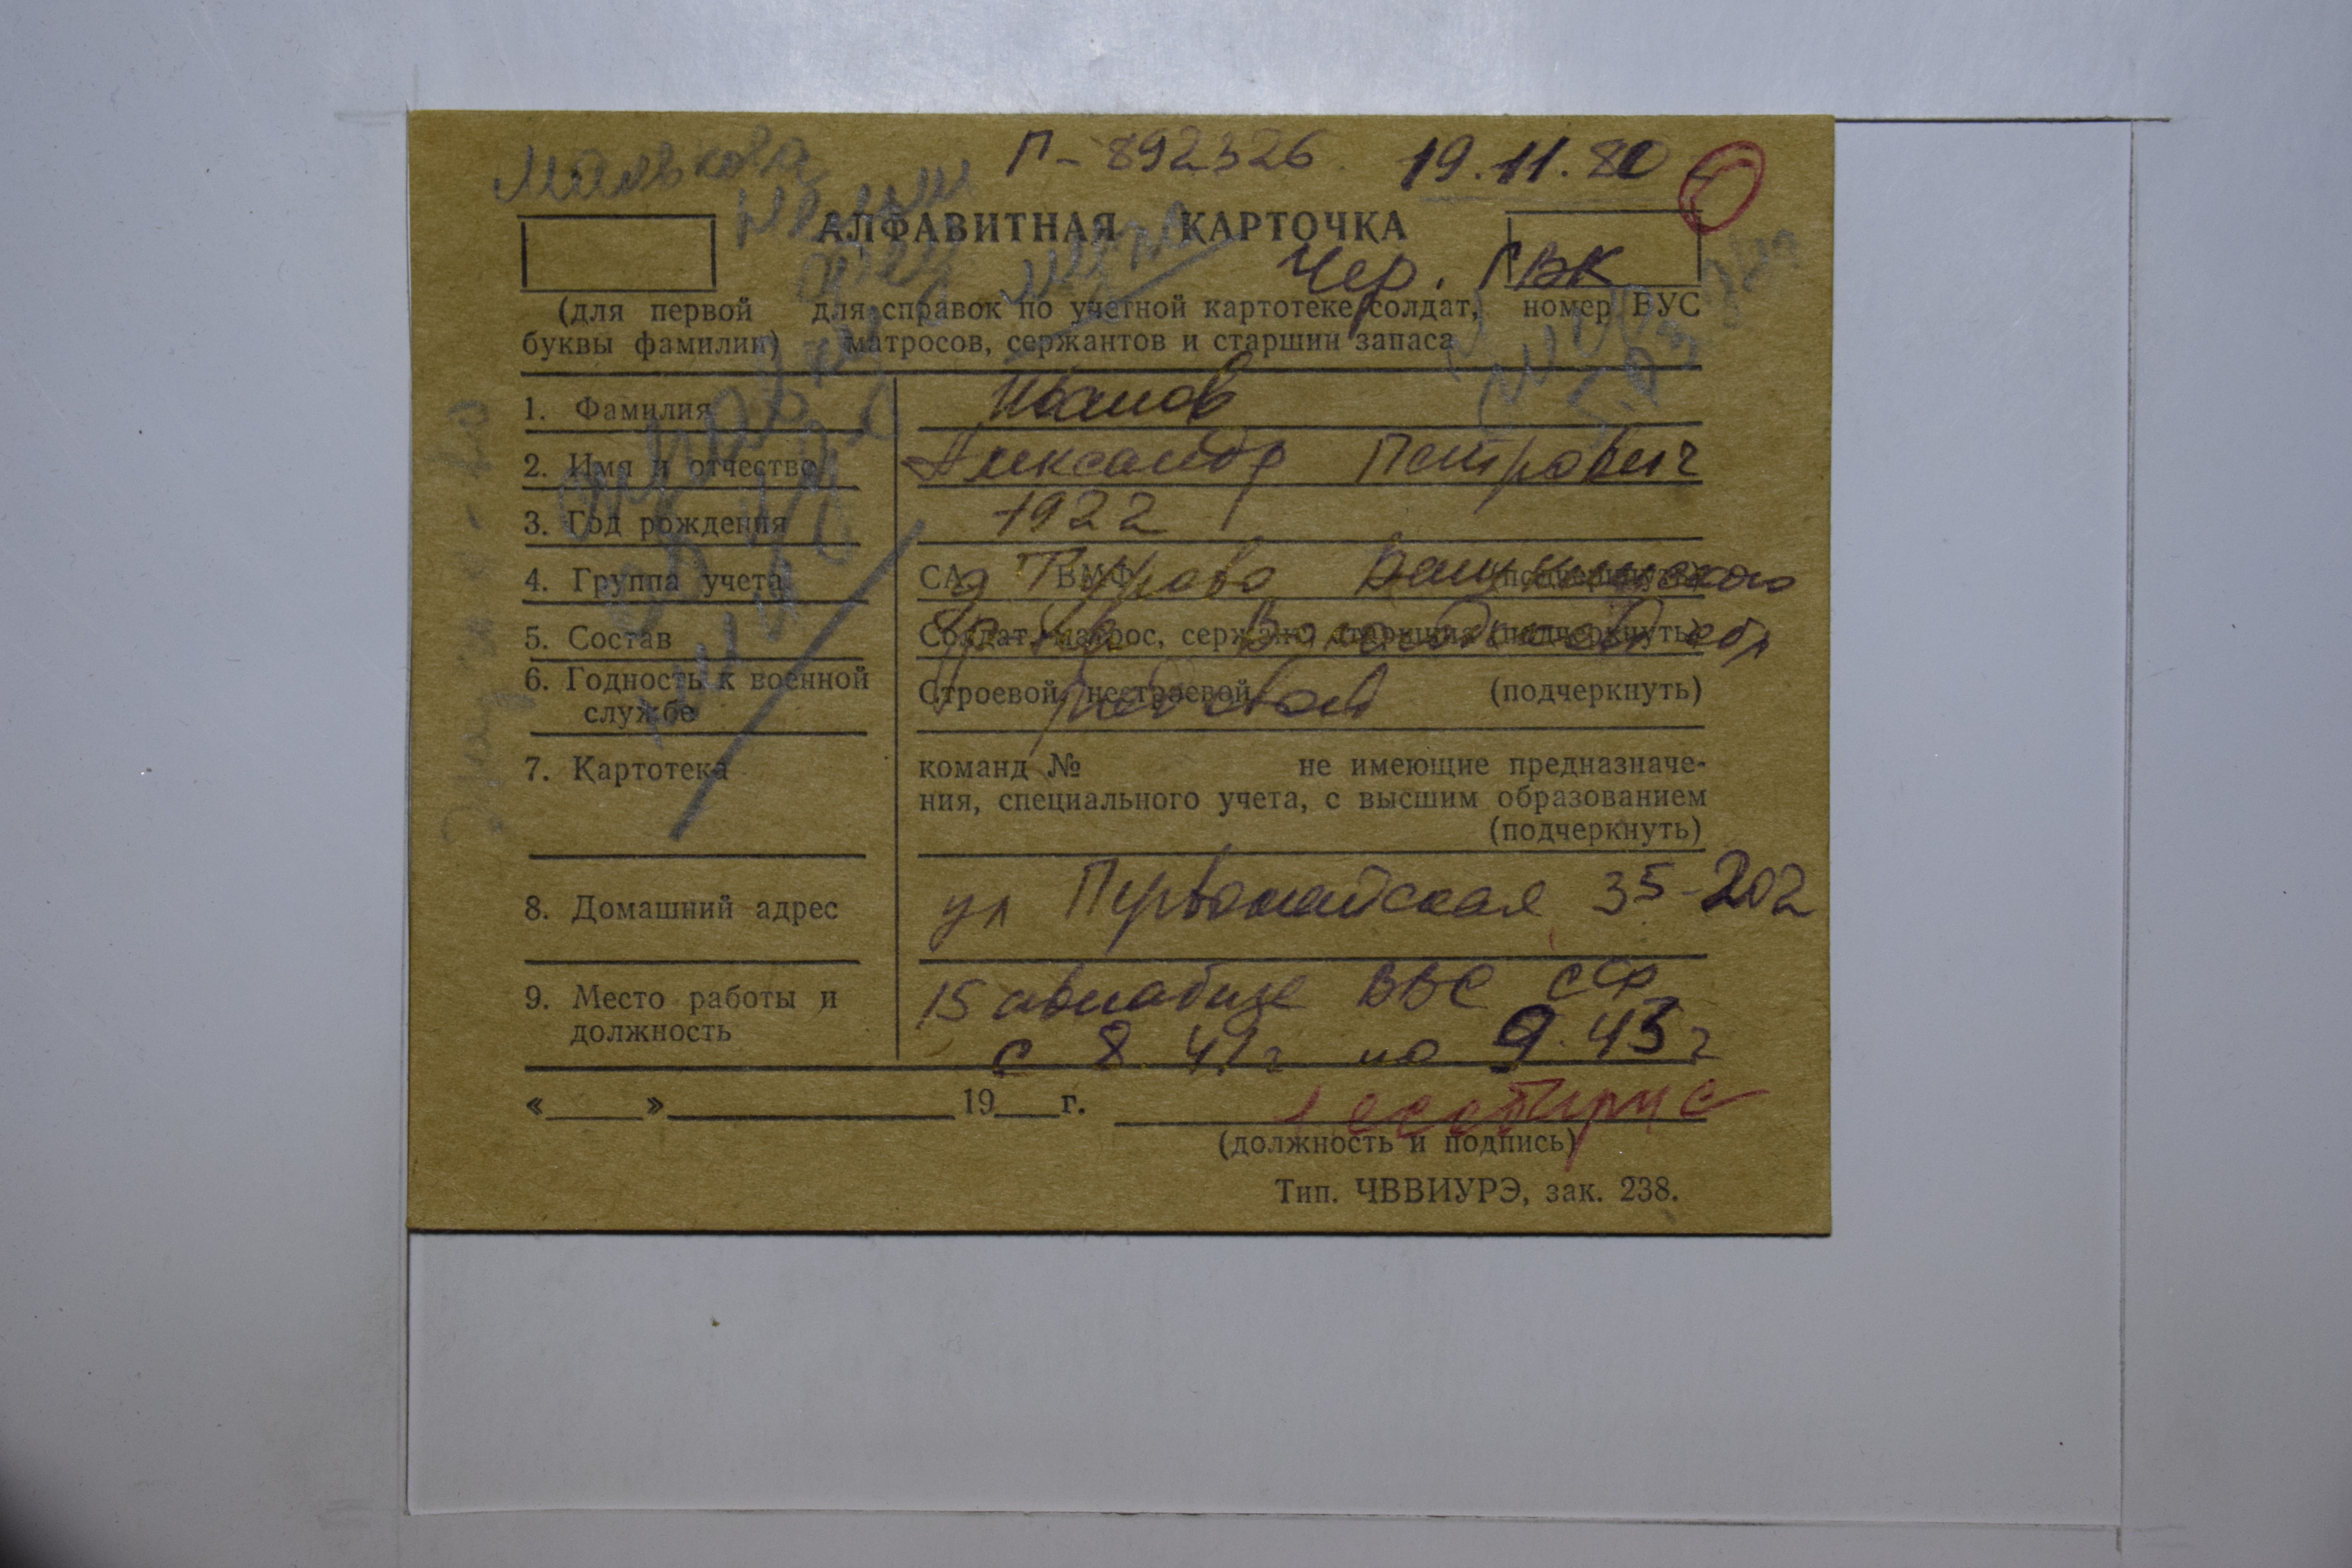 Малькова
П-892326. 19.11.80
АЛФАВИТНАЯ КАРТОЧКА
Чер. ГВК
(для первой буквы фамилии)
для справок по учетной картотеке солдат, матросов, сержантов и старшин запаса
номер ВУС
1. Фамилия Иванов
2. Имя и отчество Александр Петрович
3. Год рождения 1922
4. Группа учета СА, ВМФ (подчеркнуть)
д Вашкинского
5. Состав Солдат, матрос, сержант, старшина (подчеркнуть)
р-на Вологодской обл
6. Годность к военной службе Строевой, нестроевой (подчеркнуть)
рядовой
7. Картотека
команд № не имеющие предназначе-
ния, специального учета, с высшим образованием
(подчеркнуть)
8. Домашний адрес ул Первомайская 35-202
9. Место работы и должность
15 авиабазе ВВС
с 8.41г по 9.43г
«___»___19__г.
(должность и подпись)
Тип. ЧВВИУРЭ, зак. 238.